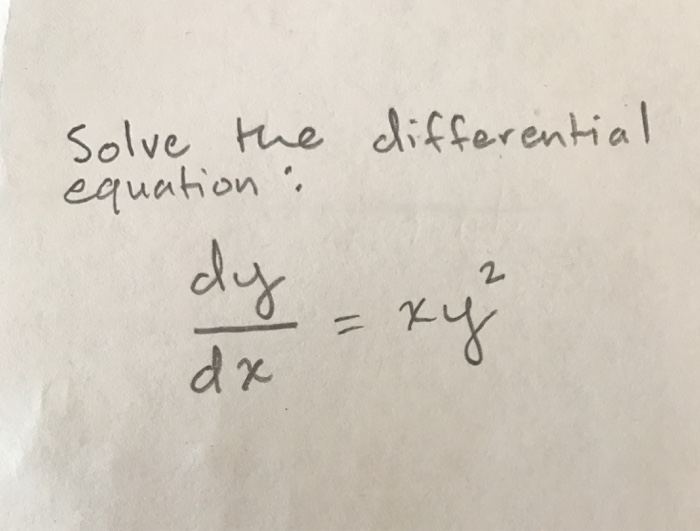 Solve the differential
equation:
dy/dx = xy²